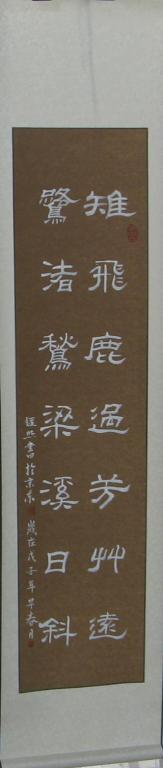 雉飛鹿過芳艸遠
鷺渚鶖梁溪日斜
歲在戊子年早春月
書於京東